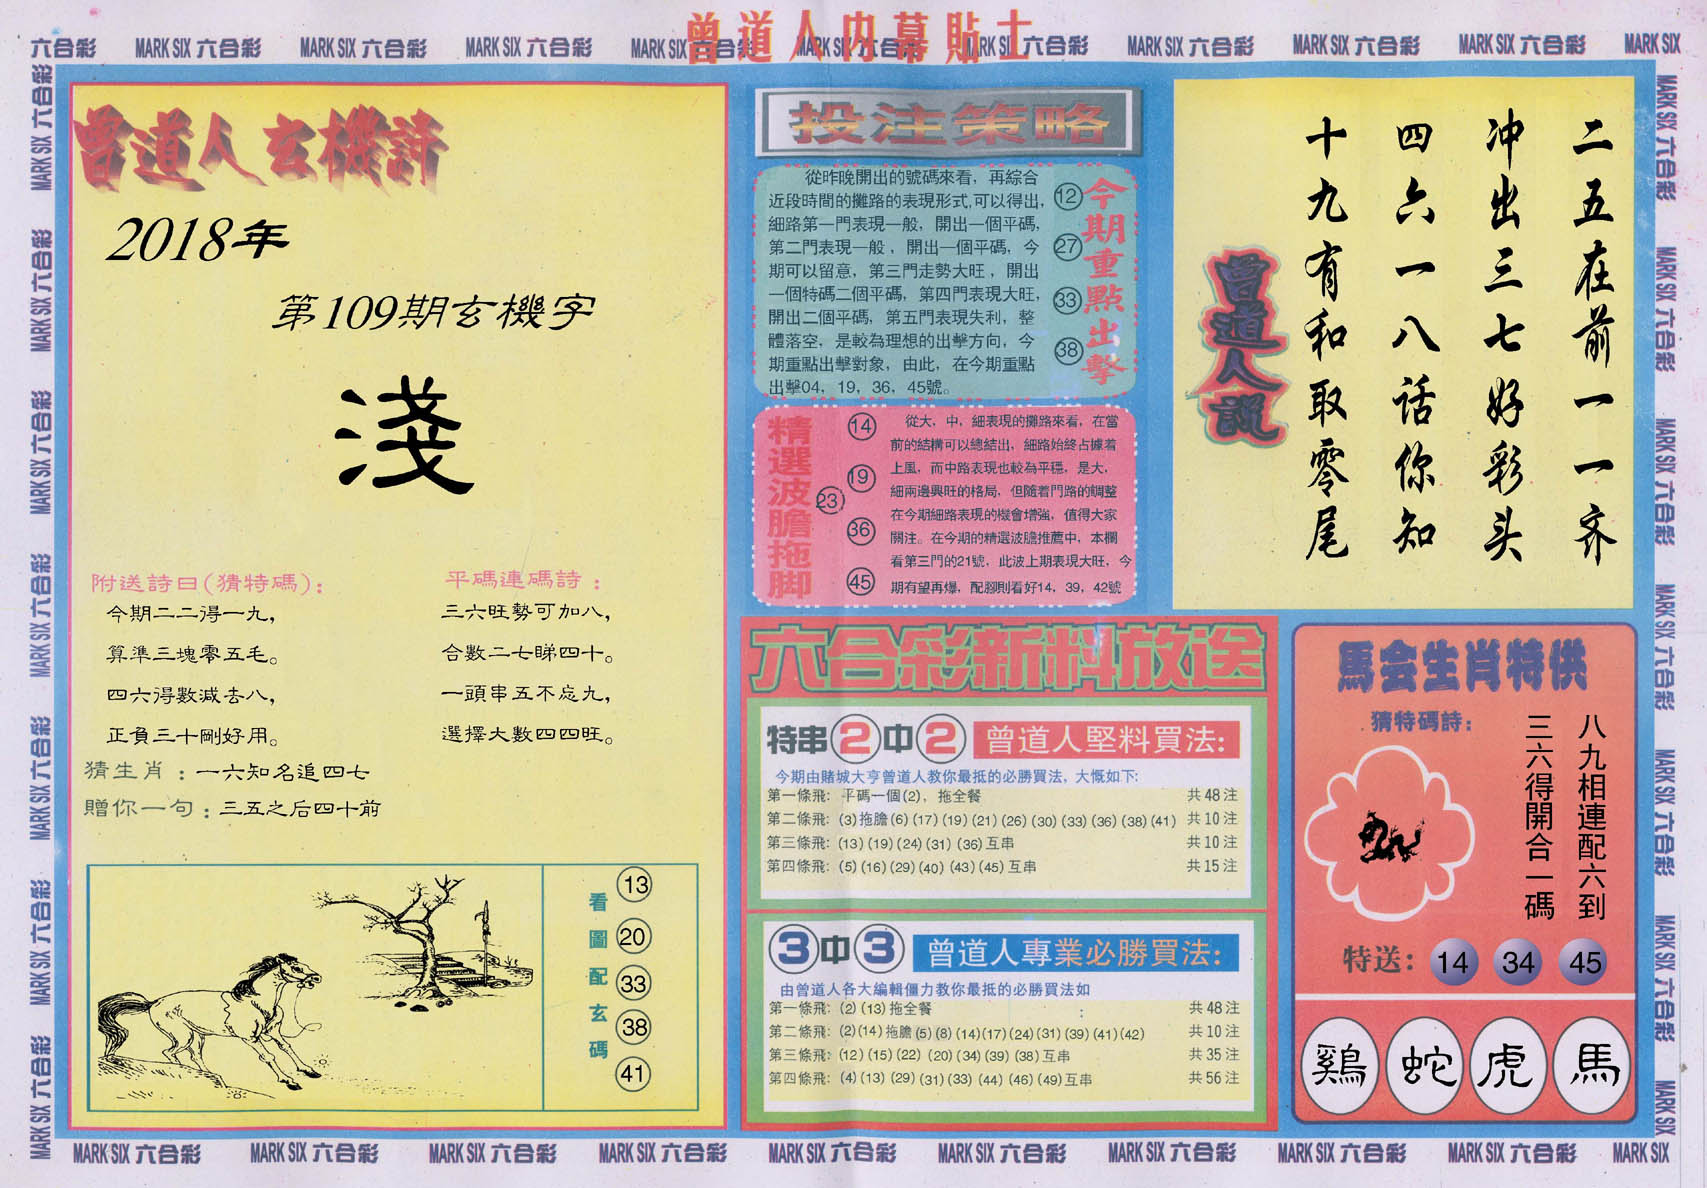 曾道人内幕貼士
六合彩 MARK SIX 六合彩 MARK SIX 六合彩 MARK SIX 六合彩 MARK SIX 六合彩 MARK SIX 六合彩 MARK SIX 六合彩 MARK SIX 六合彩 MARK SIX 六合彩 MARK SIX 六合彩 MARK SIX
曾道人玄機詩
2018年
第109期玄機字
淺
附送詩曰(猜特碼):
今期二二得一九,
算準三塊零五毛。
四六得數減去八,
正負三十剛好用。
平碼連碼詩:
三六旺勢可加八,
合數二七睇四十。
一頭串五不忘九,
選擇大數四四旺。
猜生肖:一六知名追四七
贈你一句:三五之后四十前
看圖配玄碼
13
20
33
38
41
投注策略
從昨晚開出的號碼來看，再綜合
近段時間的攤路的表現形式,可以得出,
細路第一門表現一般，開出一個平碼,
第二門表現一般，開出一個平碼，今
期可以留意，第三門走勢大旺，開出
一個特碼二個平碼，第四門表現大旺,
開出二個平碼，第五門表現失利，整
體落空，是較為理想的出擊方向，今
期重點出擊對象，由此，在今期重點
出擊04，19，36，45號。
今期重點出擊
12
27
33
38
精選波膽拖脚
14
19
23
36
45
從大，中，細表現的攤路來看，在當
前的結構可以總結出，細路始終占據着
上風，而中路表現也較為平穩，是大，
細兩邊興旺的格局，但隨着門路的調整
在今期細路表現的機會增強，值得大家
關注。在今期的精選波膽推薦中，本欄
看第三門的21號，此波上期表現大旺，今
期有望再爆，配腳則看好14，39，42號
二五在前一一齐
冲出三七好彩头
四六一八话你知
十九有和取零尾
曾道人說
六合彩新料放送
特串2中2 曾道人堅料買法:
今期由賭城大亨曾道人教你最抵的必勝買法，大慨如下:
第一條飛: 平碼一個(2)，拖全餐 共48注
第二條飛: (3)拖膽(6)(17)(19)(21)(26)(30)(33)(36)(38)(41) 共10注
第三條飛: (13)(19)(24)(31)(36)互串 共10注
第四條飛: (5)(16)(29)(40)(43)(45)互串 共15注
3中3 曾道人專業必勝買法:
由曾道人各大編輯僵力教你最抵的必勝買法如
第一條飛: (2)(13)拖全餐 : 共48注
第二條飛: (2)(14)拖膽(5)(8)(14)(17)(24)(31)(39)(41)(42) 共10注
第三條飛: (12)(15)(22)(20)(34)(39)(38)互串 共35注
第四條飛: (4)(13)(29)(31)(33)(44)(46)(49)互串 共56注
馬会生肖特供
猜特碼詩:
八九相連配六到
三六得開合一碼
特送: 14 34 45
鷄 蛇 虎 馬
MARK SIX 六合彩 MARK SIX 六合彩 MARK SIX 六合彩 MARK SIX 六合彩 MARK SIX 六合彩 MARK SIX 六合彩 MARK SIX 六合彩 MARK SIX 六合彩 MARK SIX 六合彩 MARK SIX